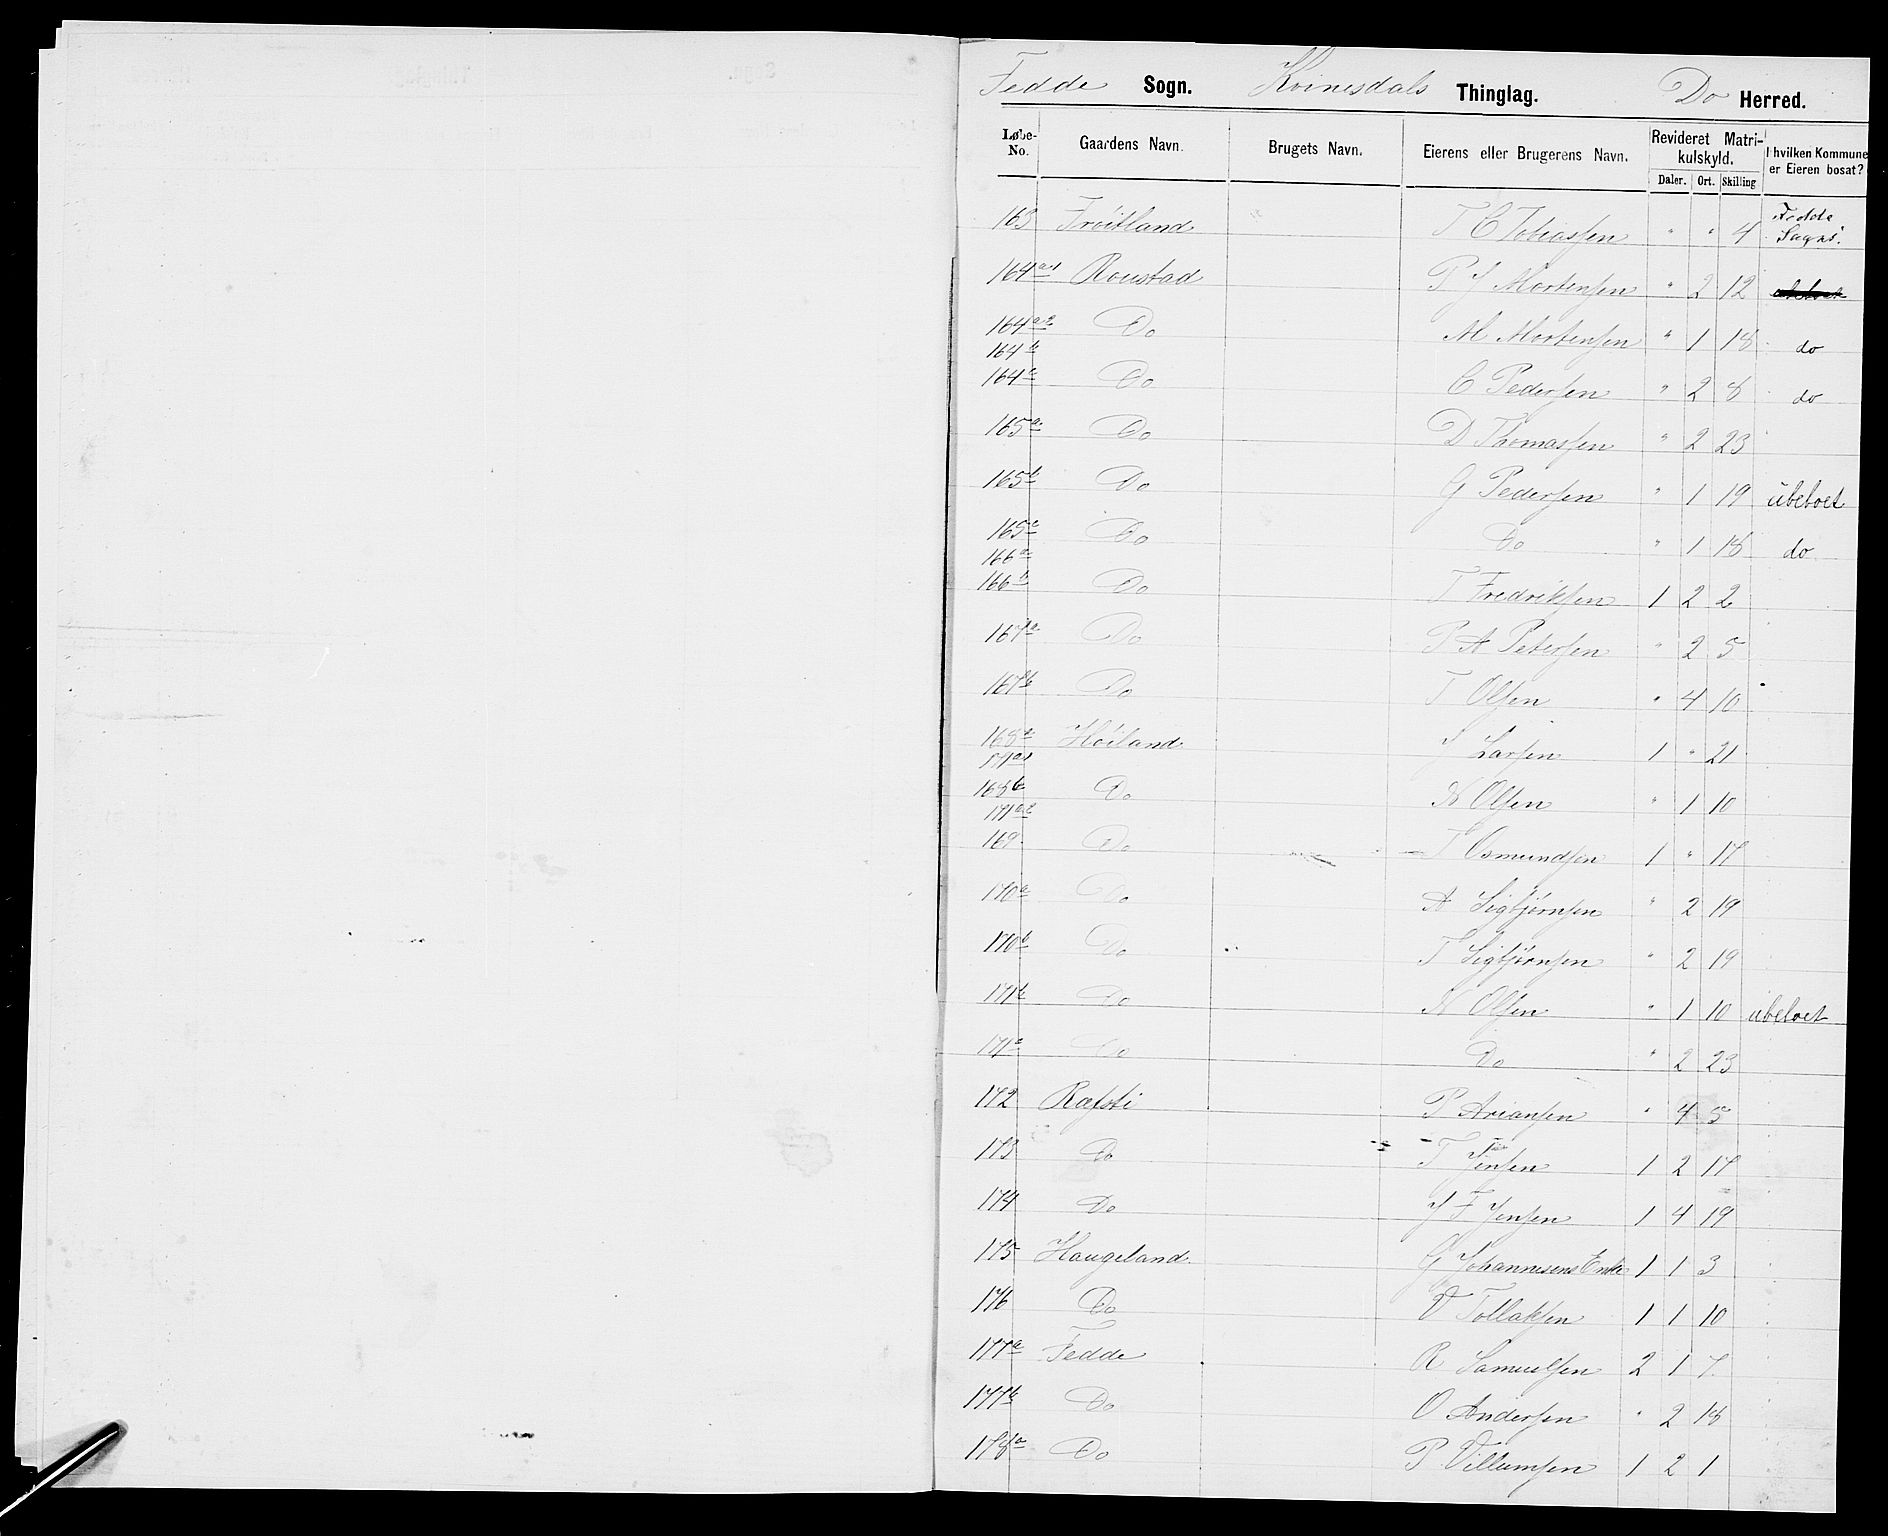 Fedde Sogn. Kvinesdals Thinglag. Do Herred.
Løbe-No. Gaardens Navn. Brugets Navn. Eierens eller Brugerens Navn. Revideret Matrikulskyld. Daler. Ort. Skilling I hvilken Kommune er Eieren bosat?
163 Frøitland T C Tobiassen " " 4 Fedde Sogns.
164 a1 Roustad P J Mortensen " 2 12
164 a2 164 b Do M Mortensen " 1 18 do
164 c Do C Pedersen " 2 8 do
165 a Do D Thomassen " 2 23
165 b Do G Pedersen " 1 19 übeboet
165 c 166 a Do Do " 1 18 do
166 b Do T Fredriksen 1 2 2
167 a Do P A Petersen " 2 5
167 b Do T Olsen " 4 10
168 a 171 a1 Høiland J Larsen 1 " 21
168 b 171 a2 Do N Olsen " 1 10
169 Do T Osmundsen 1 " 17
170 a Do A Sigbjørnsen " 2 19
170 b Do T Sigbjørnsen " 2 19
171 b Do N Olsen " 1 10 übeboet
171 c Do Do " 2 23
172 Rafsti P Ariansen " 4 5
173 Do T Jensen 1 2 17
174 Do J F Jensen 1 4 19
175 Haugeland G Johannesens Enke 1 1 3
176 Do V Tollaksen 1 1 10
177 a Fedde R Samuelsen 2 1 7
177 b Do O Andersen " 2 18
178 a Do P Villumsen 1 2 1